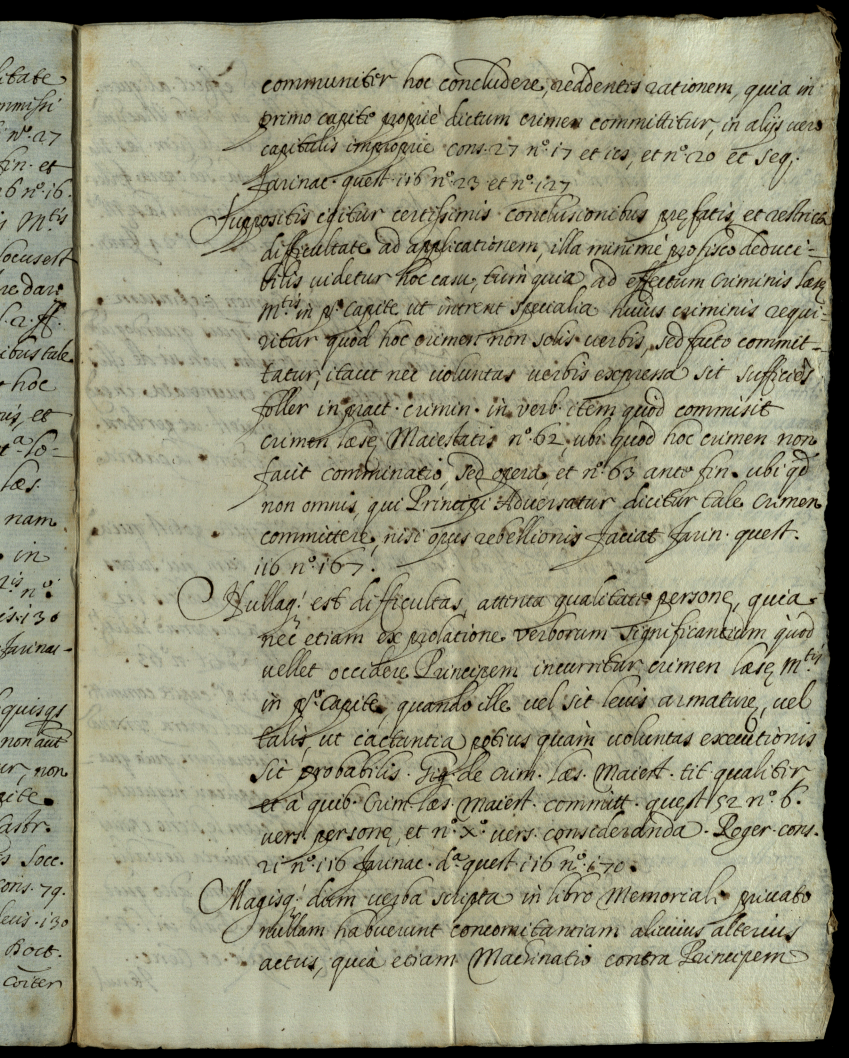 litate
mmissi
nº. 27
fin. et
6 nº. 16.
Mtis
l. 2. ff.
ibus tale
hoc
et
læs.
nam
in
nº.
is. 130
farinac-
quisqs
non aut
ur, non
pite
Castr.
Socc.
cons. 79.
130
Doct.
coiter
communiter hoc concludere, reddentis rationem, quia in
primo capite propriè dictum crimen committitur, in alijs vero
capitulis improprie cons. 27 nº. 17 et ies, et nº. 20 et seq.
Farinac. quest. 116 nº. 23 et nº. 127
Suppositis igitur certissimis conclusionibus prefatis, et restricta
difficultate ad applicationem, illa minimè pro fisco deduci-
bilis uidetur hoc casu, tum quia ad effectum Criminis læsę
Mtis in pº. Capite ut intrent specialia huius criminis requi-
ritur quòd hoc crimen non solis uerbis, sed facto commit-
tatur, itaut nec uoluntas uerbis expressa sit sufficiès
foller in pract. crimin. in verb. item quod commisit
crimen læsę Maiestatis nº. 62, ubi quòd hoc crimen non
facit comminatio, sed opera, et nº. 63 ante fin. ubi qd
non omnis, qui Principi Aduersatur dicitur tale Crimen
committere, nisi opus rebellionis faciat Farin. quest.
116 nº. 167.
Nullaq. est difficultas, attenta qualitate personę, quia
nec etiam ex prolatione verborum significantium quòd
uellet occidere Principem incurritur crimen læsę Mtis
in pº. Capite, quando ille uel sit leuis armaturę, uel
talis, ut iactantia potius quàm uoluntas executionis
sit probabilis. Gig. de crim. læs. Maiest. tit. qualiter
et à quib. Crim. læs. Maiest. committ. quest. 52 nº. 6.
uers. personę, et nº. Xº. uers. consideranda. Roger. cons.
21 nº. 116 Farinac. da. quest. 116 nº. 170.
Magisq. dum uerba scripta in libro Memoriali priuato
nullam habuerunt concomitantiam alicuius alterius
actus, quia etiam Machinatio contra Principem